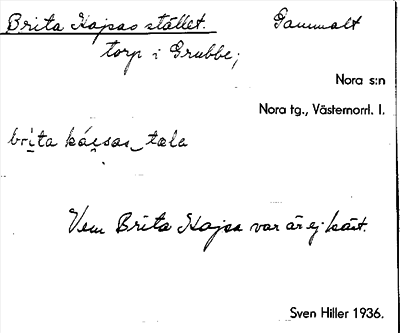 Brita Kajsas stället. Gammalt
torp i Grubbe;
Nora s:n
Nora tg., Västernorrl. l.
Vem Brita Kajsa var är ej känt.
Sven Hiller 1936.